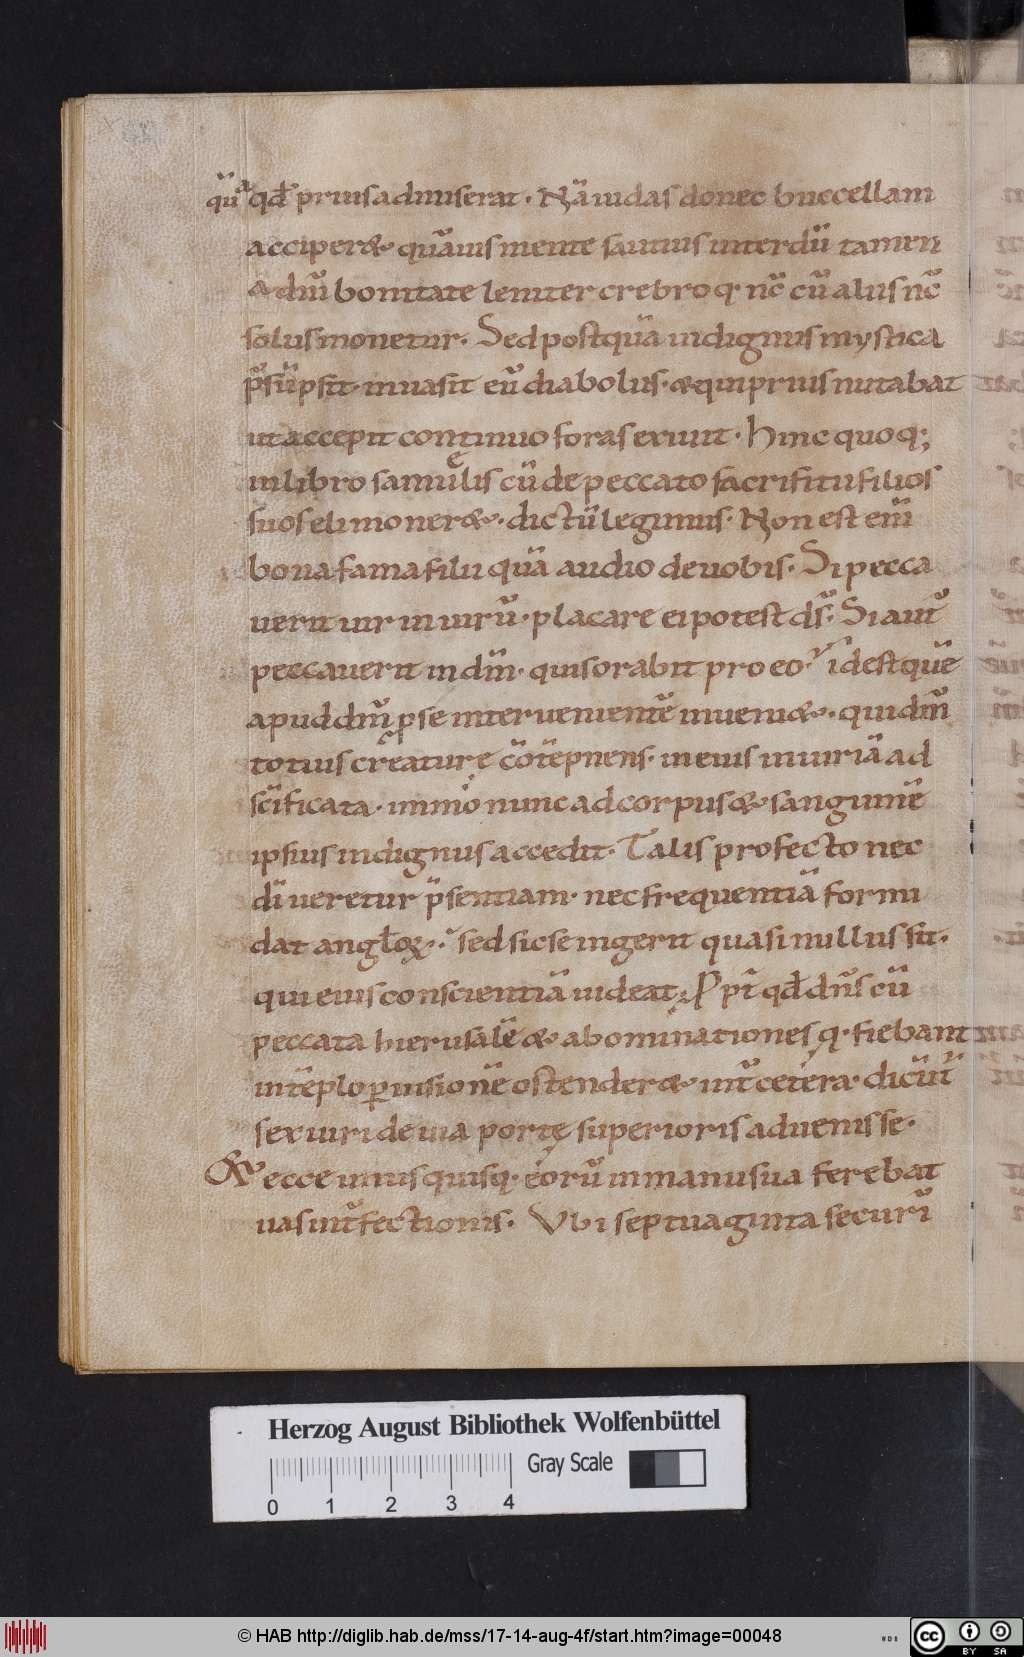 quā qd̄ prius admiserat · Nā iudas donec buccellam
acciper& quāuis mente sautius interdū tamen
a dn̄i bonitate leniter crebroq· nc̄ cū aliis nc̄
solus monetur · Sed postquā indignus mystica
p̄sūpsit · inuasit eū diabolus · & qui prius nutabat
ut accepit continuo foras exiuit · Hinc quoq;
in libro samuelis cū de peccato sacrifitii filios
suos eli moner& · dictū legimus · Non est eni̅
bona fama filii quā audio de uobis · Si pecca
uerit uir in uirū · placare ei potest ds̄ · Si aut̄
peccauerit in dn̄m · quis orabit pro eo · id est quē
apud dn̄m p se interuenientē inueni& · qui dn̄m
totius creature cōtēpnens · in eius iniuriā ad
sc̄ificata · immo nunc ad corpus & sanguinē
ipsius indignus accedit · Talis profecto nec
dī ueretur p̄sentiam · nec frequentiā formi
dat angl̄oꝝ · sed sic se ingerit quasi nullus sit ·
qui eius conscientiā uideat · Ppt̄ qd̄ dn̄s cū
peccata hierusalē & abominationes q· fiebant
in tēplo ꝑ uisionē ostender& · int̄ cetera · dicūt̄
sex uiri de uia porte superioris aduenisse ·
& ecce unus quisq· eorū in manu sua ferebat
uas int̄fectionis · Vbi septuaginta securi
Herzog August Bibliothek Wolfenbüttel
Gray Scale
0 1 2 3 4
© HAB http://diglib.hab.de/mss/17-14-aug-4f/start.htm?image=00048
WDB
cc BY SA